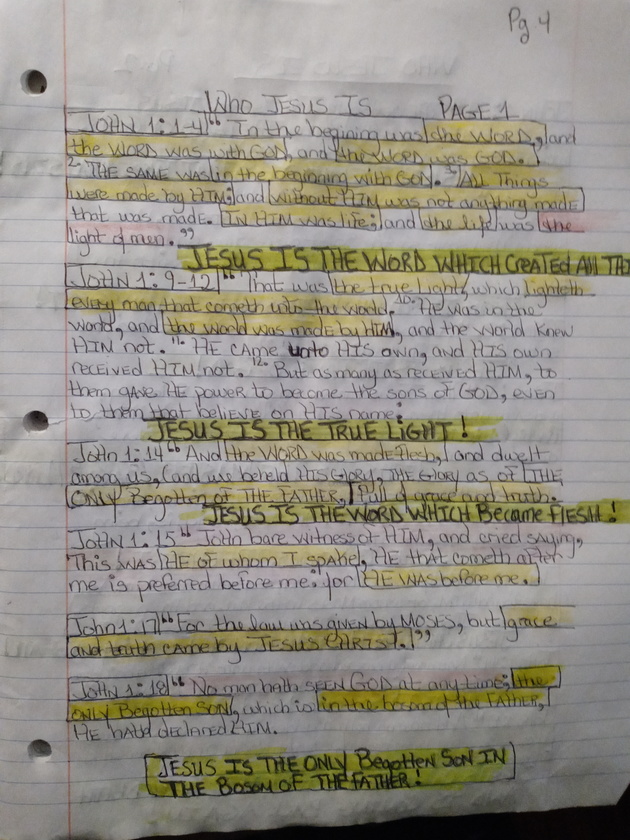 Pg 4
WHO JESUS IS PAGE 1
JOHN 1:1-4 "In the begining was the WORD, and
the WORD was with GOD, and the WORD was GOD.
2. THE SAME was in the beginning with GOD. 3. All Things
were made by HIM; and without HIM was not anything made
that was made. IN HIM was life; and the life was the
light of men."
JESUS IS THE WORD WHICH Created All THI
JOHN 1:9-12 "That was the true light, which lighteth
every man that cometh into the world. 10. HE was in the
world, and the world was made by HIM, and the world knew
HIM not. 11. HE CAME unto HIS own, and HIS own
received HIM not. 12. But as many as received HIM, to
them gave HE power to become the sons of GOD, even
to them that believe on HIS name:
JESUS IS THE TRUE LIGHT!
John 1:14 "And the WORD was made flesh, and dwelt
among us, (and we beheld HIS GLORY, THE GLORY as of THE
ONLY Begotten OF THE FATHER, full of grace and truth.
JESUS IS THE WORD WHICH Became FLESH!
JOHN 1:15 "John bare witness of HIM, and cried saying,
This was HE of whom I spake, HE that cometh after
me is preferred before me: for HE WAS before me.
John 1:17 "For the law was given by MOSES, but grace
and truth came by JESUS CHRIST."
JOHN 1:18 "No man hath SEEN GOD at any time; the
ONLY Begotten SON, which is in the bosom of the FATHER,
HE hath declared HIM.
JESUS IS THE ONLY Begotten SON IN
THE BOSOM OF THE FATHER!